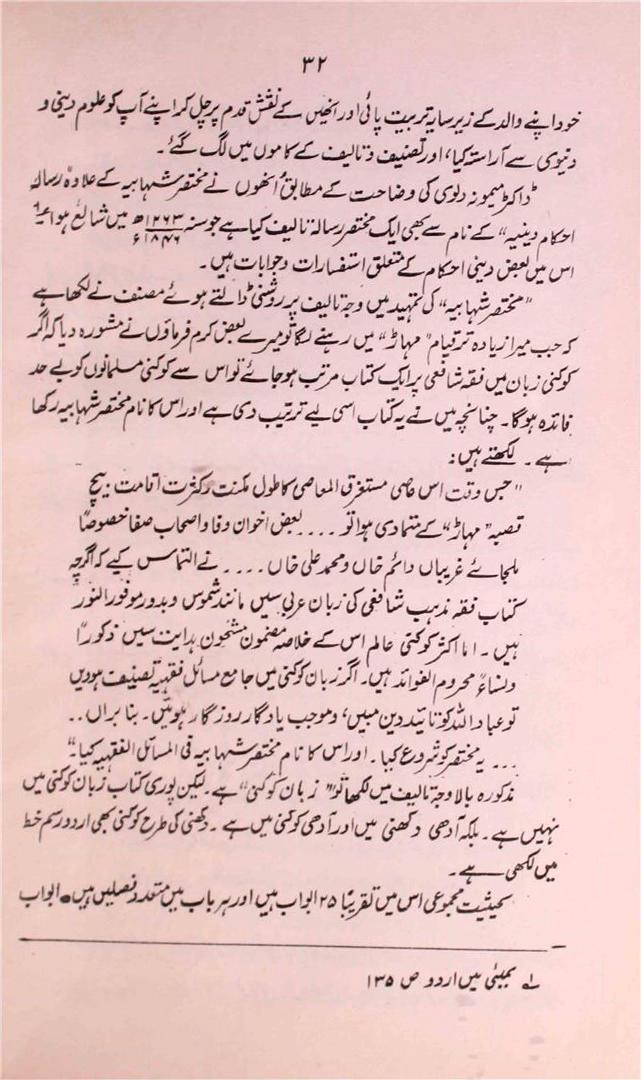 ۳۲
خود اپنے والد کے زیر سایہ تربیت پائی اور انھیں کے نقش قدم پر چل کر اپنے آپ کو علوم دینی و
دنیوی سے آراستہ کیا، اور تصنیف و تالیف کے کاموں میں لگ گئے۔
ڈاکٹر میمونہ دلوی کی وضاحت کے مطابق انھوں نے مختصر شہابیہ کے علاوہ رسالہ
احکام دینیہ" کے نام سے بھی ایک مختصر رسالہ تالیف کیا ہے جو سنہ ۱۲۶۳ھ / ۱۸۴۶ء میں شائع ہوا ہے
اس میں بعض دینی احکام کے متعلق استفسارات و جوابات ہیں۔
"مختصر شہابیہ" کی تمہید میں وجہ تالیف پر روشنی ڈالتے ہوئے مصنف نے لکھا ہے
کہ جب میرا زیادہ تر قیام "مہاڑ" میں رہنے لگا تو میرے بعض کرم فرماؤں نے مشورہ دیا کہ اگر
کوکنی زبان میں فقہ شافعی پر ایک کتاب مرتب ہو جائے تو اس سے کوکنی مسلمانوں کو بے حد
فائدہ ہوگا۔ چنانچہ میں نے یہ کتاب اسی لیے ترتیب دی ہے اور اس کا نام مختصر شہابیہ رکھا
ہے۔ لکھتے ہیں:
"جس وقت اس عاصی مستغرق المعاصی کا طول مکنت و کثرت اقامت بیچ
قصبہ "مہاڑ" کے متمادی ہوا تو .... بعض اخوان وفا و اصحاب صفا خصوصاً
ملجائے غریباں دائم خاں و محمد علی خاں .... نے التماس کیے کہ اگرچہ
کتاب فقہ مذہب شافعی کی زبان عربی سیں مانند شموس و بدور موفور النور
ہیں۔ اما اکثر کوکنی عالم اس کے خلاصہ مضمون مشحون ہدایت سیں ذکوراً
و نساءً محروم الفوائد ہیں۔ اگر زبان کوکنی میں جامع مسائل فقہیہ تصنیف ہودیں
تو عباد اللہ کو تائید دین مبیں، و موجب یادگار روزگار ہوئیں۔ بنا براں ..
... یہ مختصر کو شروع کیا۔ اور اس کا نام مختصر شہابیہ فی المسائل الفقہیہ کیا۔"
مذکورہ بالا وجہ تالیف میں لکھا تو "زبان کوکنی" ہے۔ لیکن پوری کتاب زبان کوکنی میں
نہیں ہے۔ بلکہ آدھی دکھنی میں اور آدھی کوکنی میں ہے۔ دکھنی کی طرح کوکنی بھی اردو رسم خط
میں لکھی ہے۔
بحیثیت مجموعی اس میں تقریباً ۲۵ ابواب ہیں اور ہر باب میں متعدد فصلیں ہیں۔ ابواب
لے بمبئی میں اردو ص ۱۳۵